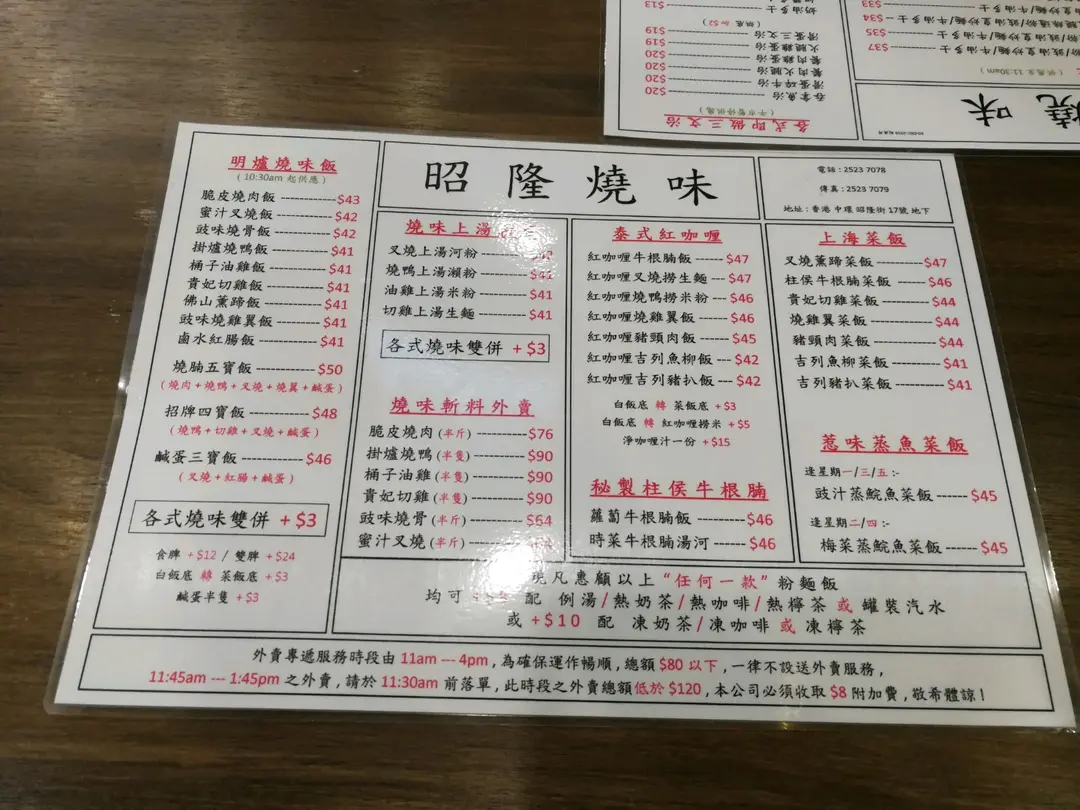 昭隆燒味
電話 : 2523 7078
傳真 : 2523 7079
地址 : 香港 中環 昭隆街 17號 地下
明爐燒味飯
( 10:30am 起供應 )
脆皮燒肉飯 ------------ $43
蜜汁叉燒飯 ------------ $42
豉味燒骨飯 ------------ $42
掛爐燒鴨飯 ------------ $41
桶子油雞飯 ------------ $41
貴妃切雞飯 ------------ $41
佛山薰蹄飯 ------------ $41
豉味燒雞翼飯 --------- $41
鹵水紅腸飯 ------------ $41
燒腩五寶飯 ------------ $50
( 燒肉 + 燒鴨 + 叉燒 + 燒翼 + 鹹蛋 )
招牌四寶飯 ------------ $48
( 燒鴨 + 切雞 + 叉燒 + 鹹蛋 )
鹹蛋三寶飯 ------------ $46
( 叉燒 + 紅腸 + 鹹蛋 )
各式燒味雙併 + $3
食髀 + $12 / 雙髀 + $24
白飯底 轉 菜飯底 + $3
鹹蛋半隻 + $3
燒味上湯
叉燒上湯河粉 --------
燒鴨上湯瀨粉 -------- $41
油雞上湯米粉 -------- $41
切雞上湯生麵 -------- $41
各式燒味雙併 + $3
燒味斬料外賣
脆皮燒肉 (半斤) ---------- $76
掛爐燒鴨 (半隻) ---------- $90
桶子油雞 (半隻) ---------- $90
貴妃切雞 (半隻) ---------- $90
豉味燒骨 (半斤) ---------- $64
蜜汁叉燒 (半斤) ----------
泰式紅咖喱
紅咖喱牛根腩飯 ----- $47
紅咖喱叉燒撈生麵 --- $47
紅咖喱燒鴨撈米粉 --- $46
紅咖喱燒雞翼飯 ----- $46
紅咖喱豬頸肉飯 ----- $45
紅咖喱吉列魚柳飯 --- $42
紅咖喱吉列豬扒飯 --- $42
白飯底 轉 菜飯底 + $3
白飯底 轉 紅咖喱撈米 + $5
淨咖喱汁一份 + $15
秘製柱侯牛根腩
蘿蔔牛根腩飯 ---------- $46
時菜牛根腩湯河 ------- $46
上海菜飯
叉燒薰蹄菜飯 --------- $47
柱侯牛根腩菜飯 ------ $46
貴妃切雞菜飯 --------- $44
燒雞翼菜飯 ------------ $44
豬頸肉菜飯 ------------ $44
吉列魚柳菜飯 --------- $41
吉列豬扒菜飯 --------- $41
惹味蒸魚菜飯
逢星期一/三/五 :-
豉汁蒸鯇魚菜飯 ------ $45
逢星期二/四 :-
梅菜蒸鯇魚菜飯 ------ $45
凡惠顧以上 “任何一款” 粉麵飯
均可 配 例湯/熱奶茶/熱咖啡/熱檸茶 或 罐裝汽水
或 +$10 配 凍奶茶/凍咖啡 或 凍檸茶
外賣專遞服務時段由 11am --- 4pm , 為確保運作暢順 , 總額 $80 以下 , 一律不設送外賣服務 ,
11:45am --- 1:45pm 之外賣 , 請於 11:30am 前落單 , 此時段之外賣總額低於 $120 , 本公司必須收取 $8 附加費 , 敬希體諒 !
燒味
各式即做三文治
吞拿魚治 ---------- $20
滑蛋碎牛治 ---------- $20
餐肉火腿治 ---------- $20
餐肉雞蛋治 ---------- $20
火腿雞蛋治 ---------- $19
滑蛋三文治 ---------- $19
(烘底 加 $2)
奶油多士 ---------- $13
$37
$35
$34
$33